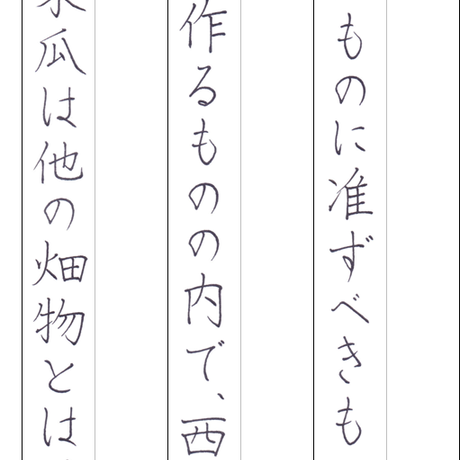 ものに准ずべきも
作るものの内で、西
瓜は他の畑物とは